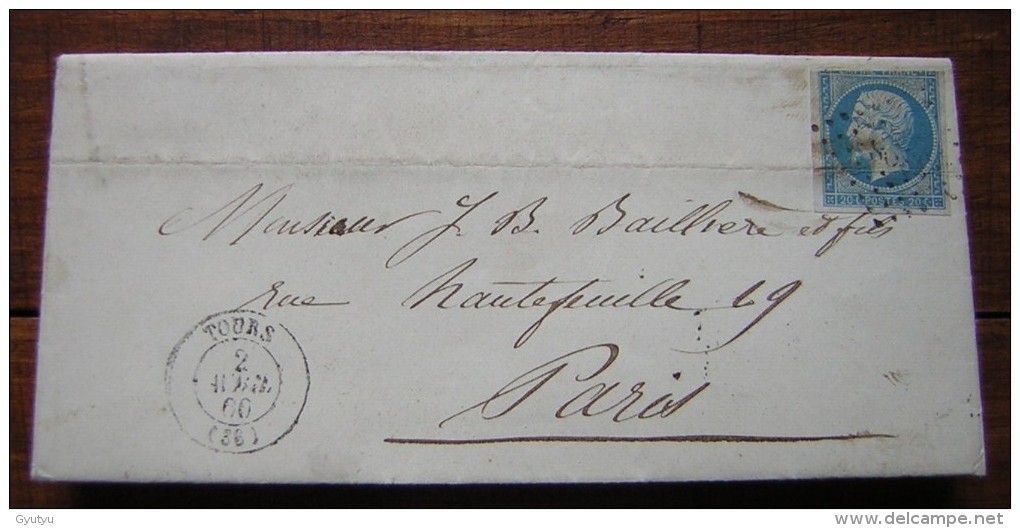 Monsieur J. B. Baillière et fils
rue hautefeuille 19
Paris
TOURS
2
60
(36)
20 C. POSTE. 20 C.
Gyutyu
www.delcampe.net